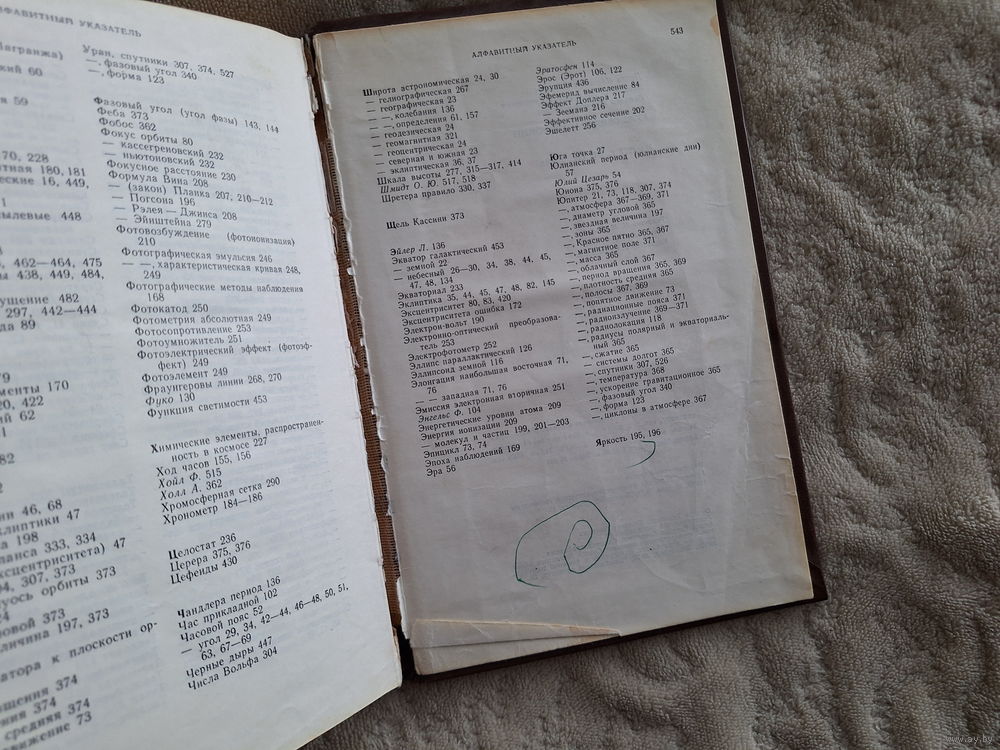 АЛФАВИТНЫЙ УКАЗАТЕЛЬ
Лагранжа)
60
59
70, 228
180, 181
16, 449,
448
462—464, 475
438, 449, 484,
482
297, 442—444
89
170
20, 422
62
82
46, 68
47
198
333, 334
47
307, 373
орбиты 373
373
197, 373
к плоскости ор-
374
374
средняя 374
73
Уран, спутники 307, 374, 527
—, фазовый угол 340
—, форма 123
Фазовый угол (угол фазы) 143, 144
Феба 373
Фобос 362
Фокус орбиты 80
— кассегреновский 232
— ньютоновский 232
Фокусное расстояние 230
Формула Вина 208
— (закон) Планка 207, 210—212
— Погсона 196
— Рэлея — Джинса 208
— Эйнштейна 279
Фотовозбуждение (фотоионизация)
210
Фотографическая эмульсия 246
— —, характеристическая кривая 248,
249
Фотографические методы наблюдения
168
Фотокатод 250
Фотометрия абсолютная 249
Фотосопротивление 253
Фотоумножитель 251
Фотоэлектрический эффект (фотоэф-
фект) 249
Фотоэлемент 249
Фраунгеровы линии 268, 270
Фуко 130
Функция светимости 453
Химические элементы, распространен-
ность в космосе 227
Ход часов 155, 156
Хойл Ф. 515
Холл А. 362
Хромосферная сетка 290
Хронометр 184—186
Целостат 236
Церера 375, 376
Цефеиды 430
Чандлера период 136
Час прикладной 102
Часовой пояс 52
— угол 29, 34, 42—44, 46—48, 50, 51,
63, 67—69
Черные дыры 447
Числа Вольфа 304
АЛФАВИТНЫЙ УКАЗАТЕЛЬ
543
Широта астрономическая 24, 30
— гелиографическая 267
— географическая 23
— —, колебания 136
— —, определения 61, 157
— геодезическая 24
— геомагнитная 321
— геоцентрическая 24
— северная и южная 23
— эклиптическая 36, 37
Шкала высоты 277, 315—317, 414
Шмидт О. Ю. 517, 518
Шретера правило 330, 337
Щель Кассини 373
Эйлер Л. 136
Экватор галактический 453
— земной 22
— небесный 26—30, 34, 38, 44, 45,
47, 48, 134
Экваториал 233
Эклиптика 35, 44, 45, 47, 48, 82, 145
Эксцентриситет 80, 83, 420
Эксцентриситета ошибка 172
Электрон-вольт 190
Электронно-оптический преобразова-
тель 253
Электрофотометр 252
Эллипс параллактический 126
Эллипсоид земной 116
Элонгация наибольшая восточная 71,
76
— — западная 71, 76
Эмиссия электронная вторичная 251
Энгельс Ф. 104
Энергетические уровни атома 209
Энергия ионизации 209
— молекул и частиц 199, 201—203
Эпицикл 73, 74
Эпоха наблюдений 169
Эра 56
Эратосфен 114
Эрос (Эрот) 106, 122
Эрупция 436
Эфемерид вычисление 84
Эффект Доплера 217
— Зеемана 216
Эффективное сечение 202
Эшелетт 256
Юга точка 27
Юлианский период (юлианские дни)
57
Юлий Цезарь 54
Юнона 375, 376
Юпитер 21, 73, 118, 307, 374
—, атмосфера 367—369, 371
—, диаметр угловой 365
—, звездная величина 197
—, зоны 365
—, Красное пятно 365, 367
—, магнитное поле 371
—, масса 365
—, облачный слой 367
—, период вращения 365, 369
—, плотность средняя 365
—, полосы 367, 369
—, попятное движение 73
—, радиационные пояса 371
—, радиоизлучение 369—371
—, радиолокация 118
—, радиусы полярный и экваториаль-
ный 365
—, сжатие 365
—, системы долгот 365
—, спутники 307, 526
—, температура 368
—, ускорение гравитационное 365
—, фазовый угол 340
—, форма 123
—, циклоны в атмосфере 367
Яркость 195, 196
www.ay.by